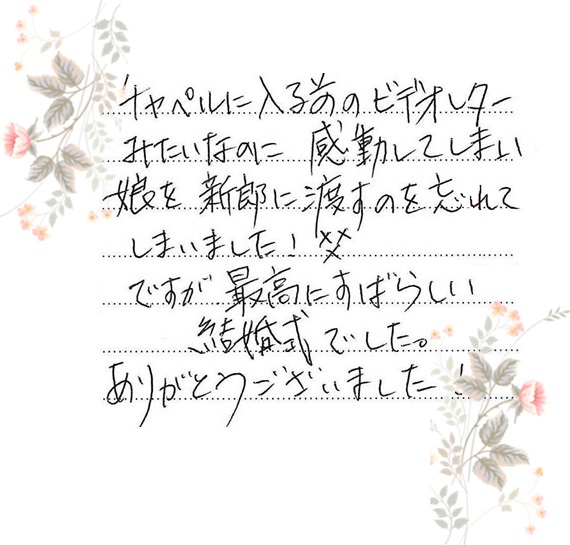 チャペルに入る前のビデオレター
みたいなのに 感動してしまい
娘を 新郎に渡すのを忘れて
しまいました! ××
ですが 最高にすばらしい
結婚式でした。
ありがとうございました!